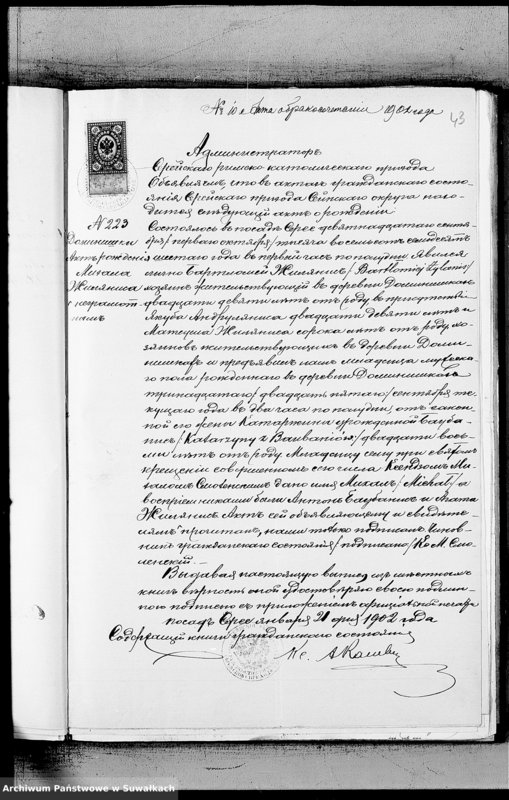 № 10 къ акту бракосочетанiи 1902 года
43
Администраторъ
Срейскаго римско католическаго прихода
Объявляемъ, что въ актахъ гражданскаго состо-
янiя Срейскаго прихода Сейнскаго округа нахо-
дится слѣдующiй актъ о рожденiи
№ 223
Доминишки
Актъ рожденiя
Михала
Жилянiса
Состоялось въ посадѣ Срее девятнадцатаго сентя-
бря /перваго октября/ тысяча восемьсотъ семьдесятъ
шестаго года въ первый часъ по полудни. Явился
лично Бартломей Жилянисъ /Bartłomiej Żylanis/
жительствующiй въ деревни Доминишкахъ
двадцати девяти лѣтъ отъ роду въ присутствiи
Якуба Андруляниса двадцати девяти лѣтъ и
Матеуша Жиляниса сорока лѣтъ отъ роду хо-
зяевъ жительствующихъ въ деревни Доми-
нишкахъ и предъявилъ намъ младенца мужеска-
го пола рожденнаго въ деревни Доминишкахъ
тринадцатаго /двадцать пятаго/ сентября те-
кущаго года въ два часа по полудни, отъ закон-
ной его жены Катаржины урожденной Бауба-
нисъ /Katarzyny z Baubanisów/ двадцати вось-
ми лѣтъ отъ роду. Младенцу сему при святомъ
крещенiи совершенномъ сего числа Ксендзомъ Ми-
халомъ Смоленскимъ дано имя Михалъ /Michał/, а
воспрiемниками были Антонъ Баубанисъ и Агата
Жилянисъ. Актъ сей объявляющему и свидѣте-
лямъ прочитанъ, нами только подписанъ. Чинов-
никъ гражданскаго состоянiя /подписано/ Кс. М. Смо-
ленскiй.
Выдавая настоящую выпись изъ мѣстныхъ
книгъ вѣрность оной удостовѣряю своею подпи-
сью съ приложенiемъ
посадъ Срее января 21 дня 1902 года
Содержащiй книги гражданскаго состоянiя
Кс.
Archiwum Państwowe w Suwałkach